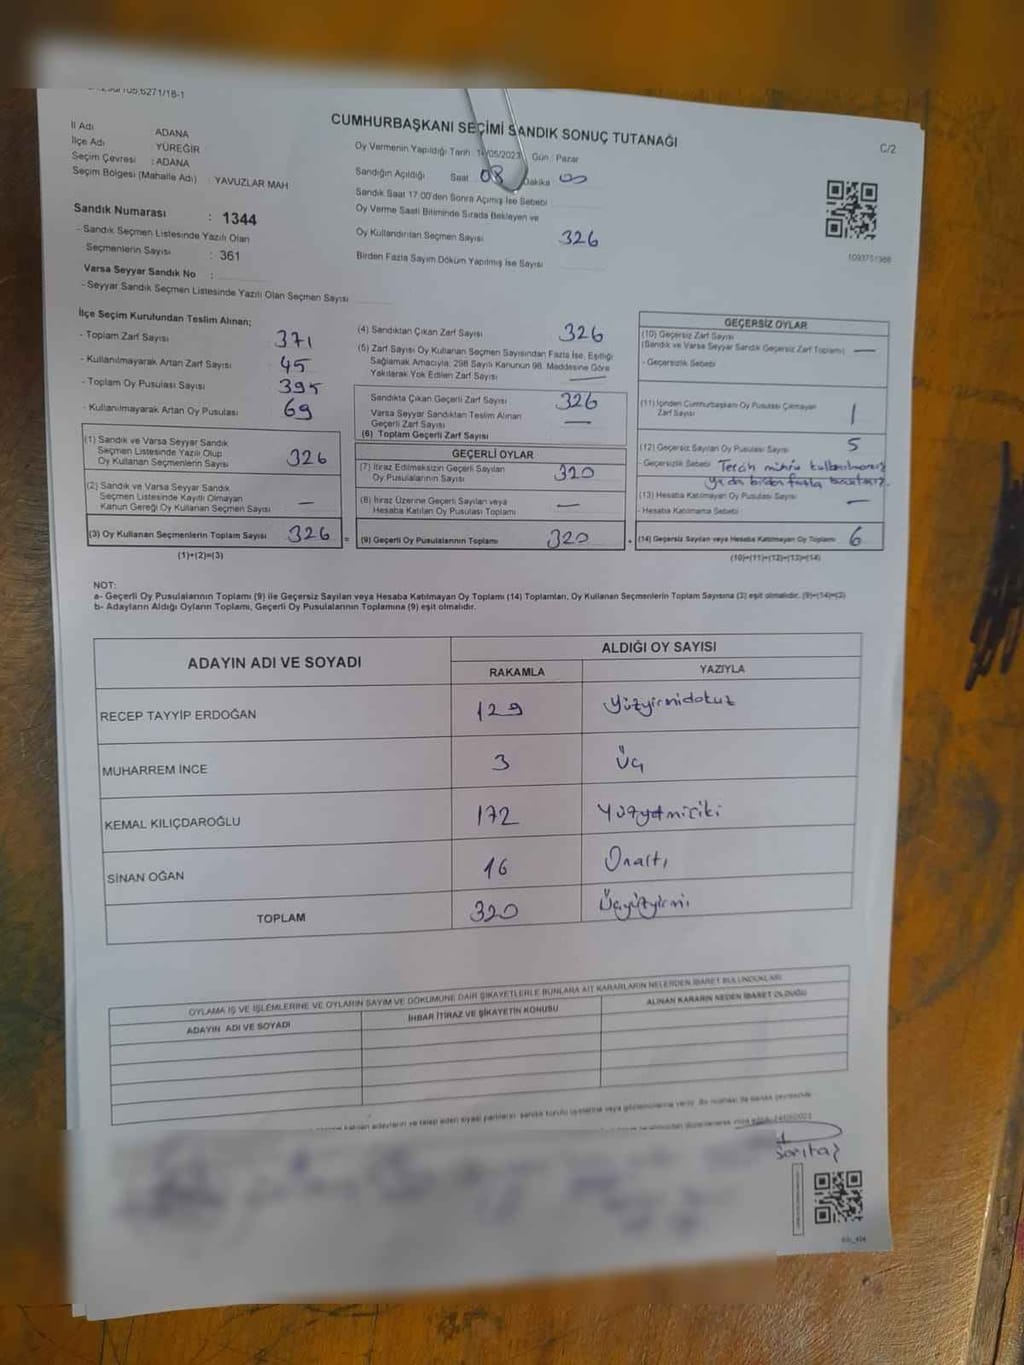 CUMHURBAŞKANI SEÇİMİ SANDIK SONUÇ TUTANAĞI
C/2
İl Adı ADANA
İlçe Adı YÜREĞİR
Seçim Çevresi : ADANA
Seçim Bölgesi (Mahalle Adı) : YAVUZLAR MAH
Sandık Numarası : 1344
- Sandık Seçmen Listesinde Yazılı Olan
Seçmenlerin Sayısı : 361
Varsa Seyyar Sandık No :
- Seyyar Sandık Seçmen Listesinde Yazılı Olan Seçmen Sayısı
Oy Vermenin Yapıldığı Tarih : 14/05/2023 Gün : Pazar
Sandığın Açıldığı Saat 08 Dakika 00
Sandık Saat 17:00'den Sonra Açımış İse Sebebi
Oy Verme Saati Bitiminde Sırada Bekleyen ve
Oy Kullandırılan Seçmen Sayısı 326
Birden Fazla Sayım Döküm Yapılmış İse Sayısı
1093751988
İlçe Seçim Kurulundan Teslim Alınan;
- Toplam Zarf Sayısı 371
- Kullanılmayarak Artan Zarf Sayısı 45
- Toplam Oy Pusulası Sayısı 395
- Kullanılmayarak Artan Oy Pusulası 69
(1) Sandık ve Varsa Seyyar Sandık
Seçmen Listesinde Yazılı Olup
Oy Kullanan Seçmenlerin Sayısı 326
(2) Sandık ve Varsa Seyyar Sandık
Seçmen Listesinde Kayıtlı Olmayan
Kanun Gereği Oy Kullanan Seçmen Sayısı —
(3) Oy Kullanan Seçmenlerin Toplam Sayısı 326 =
(1)+(2)=(3)
(4) Sandıktan Çıkan Zarf Sayısı 326
(5) Zarf Sayısı Oy Kullanan Seçmen Sayısından Fazla İse, Eşitliği
Sağlamak Amacıyla, 298 Sayılı Kanunun 98. Maddesine Göre
Yakılarak Yok Edilen Zarf Sayısı —
Sandıkta Çıkan Geçerli Zarf Sayısı 326
Varsa Seyyar Sandıktan Teslim Alınan
Geçerli Zarf Sayısı —
(6) Toplam Geçerli Zarf Sayısı
GEÇERLİ OYLAR
(7) İtiraz Edilmeksizin Geçerli Sayılan
Oy Pusulalarının Sayısı 320
(8) İtiraz Üzerine Geçerli Sayılan veya
Hesaba Katılan Oy Pusulası Toplamı —
(9) Geçerli Oy Pusulalarının Toplamı 320 +
GEÇERSİZ OYLAR
(10) Geçersiz Zarf Sayısı
(Sandık ve Varsa Seyyar Sandık Geçersiz Zarf Toplamı) —
- Geçersizlik Sebebi
(11) İçinden Cumhurbaşkanı Oy Pusulası Çıkmayan
Zarf Sayısı 1
(12) Geçersiz Sayılan Oy Pusulası Sayısı 5
- Geçersizlik Sebebi Tercih mührü
ya da birden fazla
(13) Hesaba Katılmayan Oy Pusulası Sayısı —
- Hesaba Katılmama Sebebi
(14) Geçersiz Sayılan veya Hesaba Katılmayan Oy Toplamı 6
(10)+(11)+(12)+(13)=(14)
NOT:
a- Geçerli Oy Pusulalarının Toplamı (9) ile Geçersiz Sayılan veya Hesaba Katılmayan Oy Toplamı (14) Toplamları, Oy Kullanan Seçmenlerin Toplam Sayısına (3) eşit olmalıdır. (9)+(14)=(3)
b- Adayların Aldığı Oyların Toplamı, Geçerli Oy Pusulalarının Toplamına (9) eşit olmalıdır.
ADAYIN ADI VE SOYADI ALDIĞI OY SAYISI
RAKAMLA YAZIYLA
RECEP TAYYİP ERDOĞAN 129 Yüzyirmidokuz
MUHARREM İNCE 3 Üç
KEMAL KILIÇDAROĞLU 172 Yüzyetmişiki
SİNAN OĞAN 16 Onaltı
TOPLAM 320 Üçyüzyirmi
OYLAMA İŞ VE İŞLEMLERİNE VE OYLARIN SAYIM VE DÖKÜMÜNE DAİR ŞİKAYETLERLE BUNLARA AİT KARARLARIN NELERDEN İBARET BULUNDUKLARI
ADAYIN ADI VE SOYADI İHBAR İTİRAZ VE ŞİKAYETİN KONUSU ALINAN KARARIN NEDEN İBARET OLDUĞU